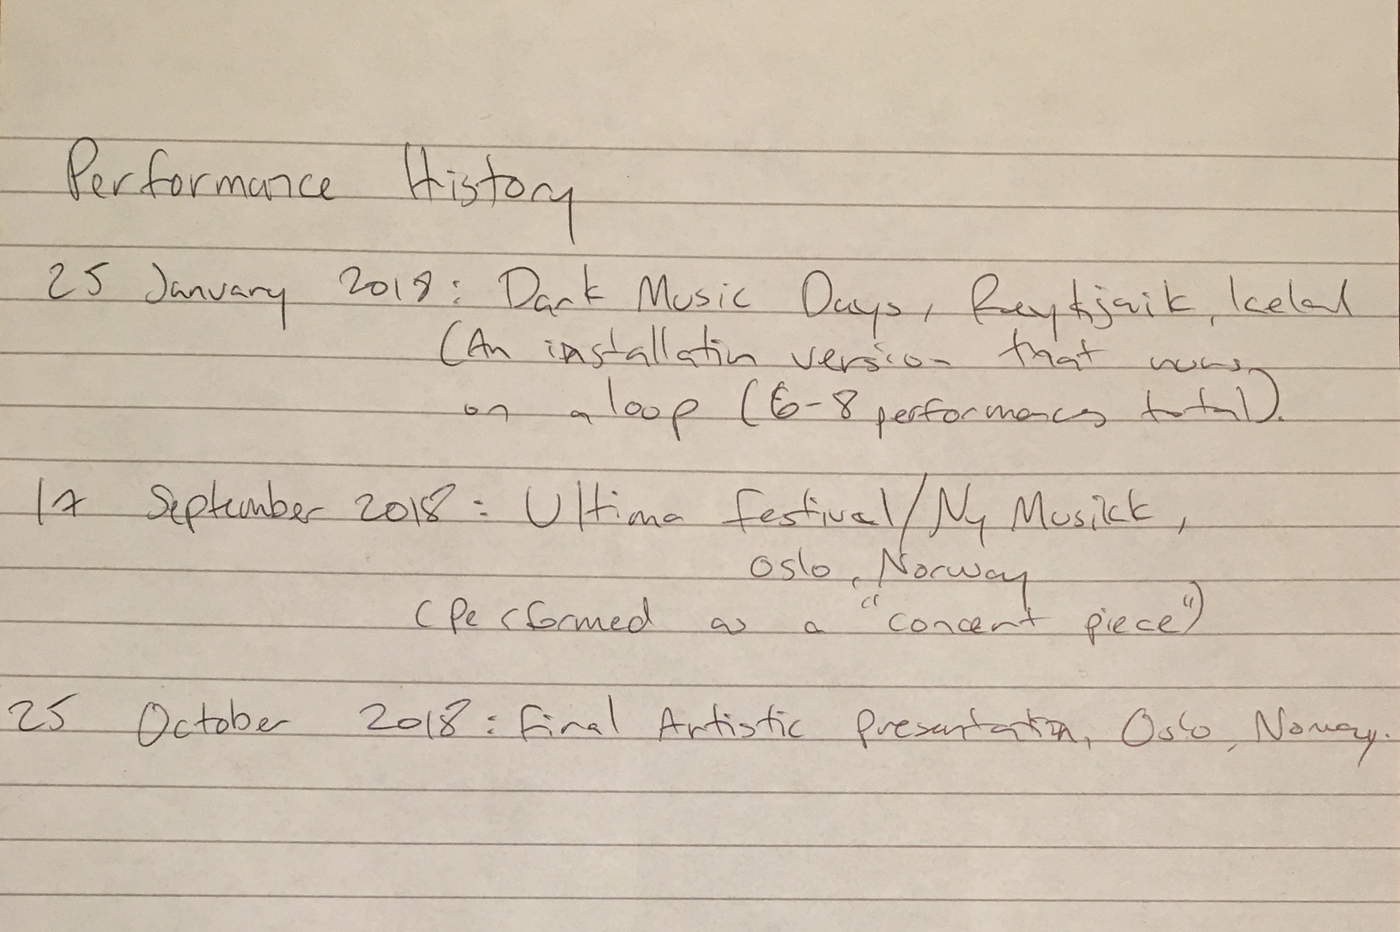 Performance History
25 January 2018: Dark Music Days, Reykjavik, Iceland
(An installation version that runs
on a loop (6-8 performances total).
17 September 2018: Ultima festival/Ny Musikk,
Oslo, Norway
(Performed as a "concert piece")
25 October 2018: Final Artistic Presentation, Oslo, Norway.